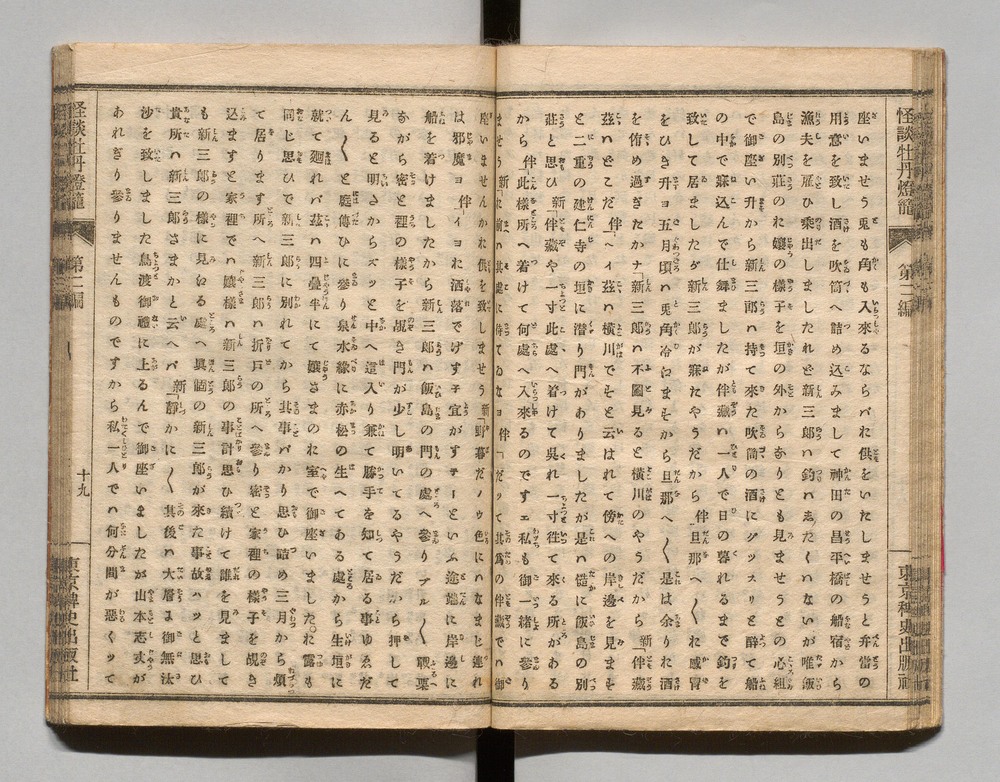 怪談牡丹燈籠　第二編　東京稗史出版社
座いませう兎も角も入來るならバお供をいたしませうと弁當の
用意を致し酒を吹筒へ詰め込みまして神田の昌平橋の船宿から
漁夫を雇ひ乘出しましたれど新三郎ハ釣ハゑたくハないが唯飯
島の別荘のお孃の樣子を垣の外からなりとも見ませうとの心組
で御座い升から新三郎ハ持て來た吹筒の酒にグッスリと醉て船
の中で寐込んで仕舞ましたが伴藏ハ一人で日の暮れるまで釣を
致して居ましたが新三郎が寐たやうだから　伴「旦那へ〱お感冒
をひき升ヨ五月頃ハ兎角冷ゐますから旦那へ〱是は余りお酒
を侑め過ぎたかナ「新三郎ハ不圖見ると横川のやうだから　新「伴藏
茲ハどこだ　伴「ヘィ茲ハ横川でそと云はれて傍への岸邊を見ませ
と二重の建仁寺の垣に潜り門がありましたが是ハ慥に飯島の別
荘と思ひ　新「伴藏や一寸此處へ着けて呉れ一寸徃て來る所がある
から　伴「此樣所へ着けて何處へ入來るのですェ私も御一緒に參り
ませう　新「お前ハ其處に待てゐなヨ　伴「だッて其爲の伴藏でハ御
座いませんかお供を致しませう　新「野暮だノゥ色にハなまじ連れ
は邪魔ヨ　伴「イョお洒落でげすテ宜がすテーといふ途端に岸邊に
船を着けましたから新三郎ハ飯島の門の處へ參りブル〱戰慄
ながら密と裡の樣子を覗き門が少し明いてるやうだから押して
見ると明きからズッと中へ這入り兼て勝手を知て居る事ゆゑだ
ん〱と庭傳ひに參り泉水縁に赤松の生へてある處から生垣に
就て廻れバ茲ハ四疊半にて孃さまのお室で御座いましたお露も
同じ思ひで新三郎に別れてから其事バかり思ひ詰め三月から煩
て居ります所へ新三郎ハ折戸の所へ參り密と家裡の樣子を覗き
込ますと家裡でハ孃樣ハ新三郎の事計思ひ續けて誰を見まして
も新三郎の樣に見ゐる處へ眞個の新三郎が來た事故ハッと思ひ
貴所ハ新三郎さまかと云へバ　新「靜かに〱其後ハ大層ょ御無沙
沙を致しました鳥渡御禮に上るんで御座いましたが山本志丈が
あれぎり參りませんものですから私一人でハ何分間が惡くッて
怪談牡丹燈籠　第二編　十九　東京稗史出版社